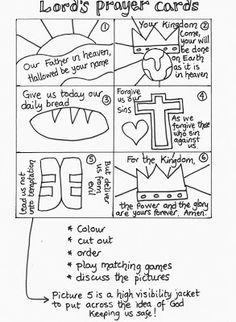 Lord's prayer cards
1
Our Father in heaven,
Hallowed be your name
2
Your Kingdom
come,
your will
be done
on Earth
as it is
in heaven
3
Give us today our
daily bread
4
Forgive
us our
sins
As we
forgive those
who sin
against
us.
5
Lead us not
into temptation
But deliver
us from
evil
6
For the Kingdom,
the Power and the glory
are yours forever, Amen.
* Colour
* cut out
* order
* play matching games
* discuss the pictures
Picture 5 is a high visibility jacket
to put across the idea of God
Keeping us safe!